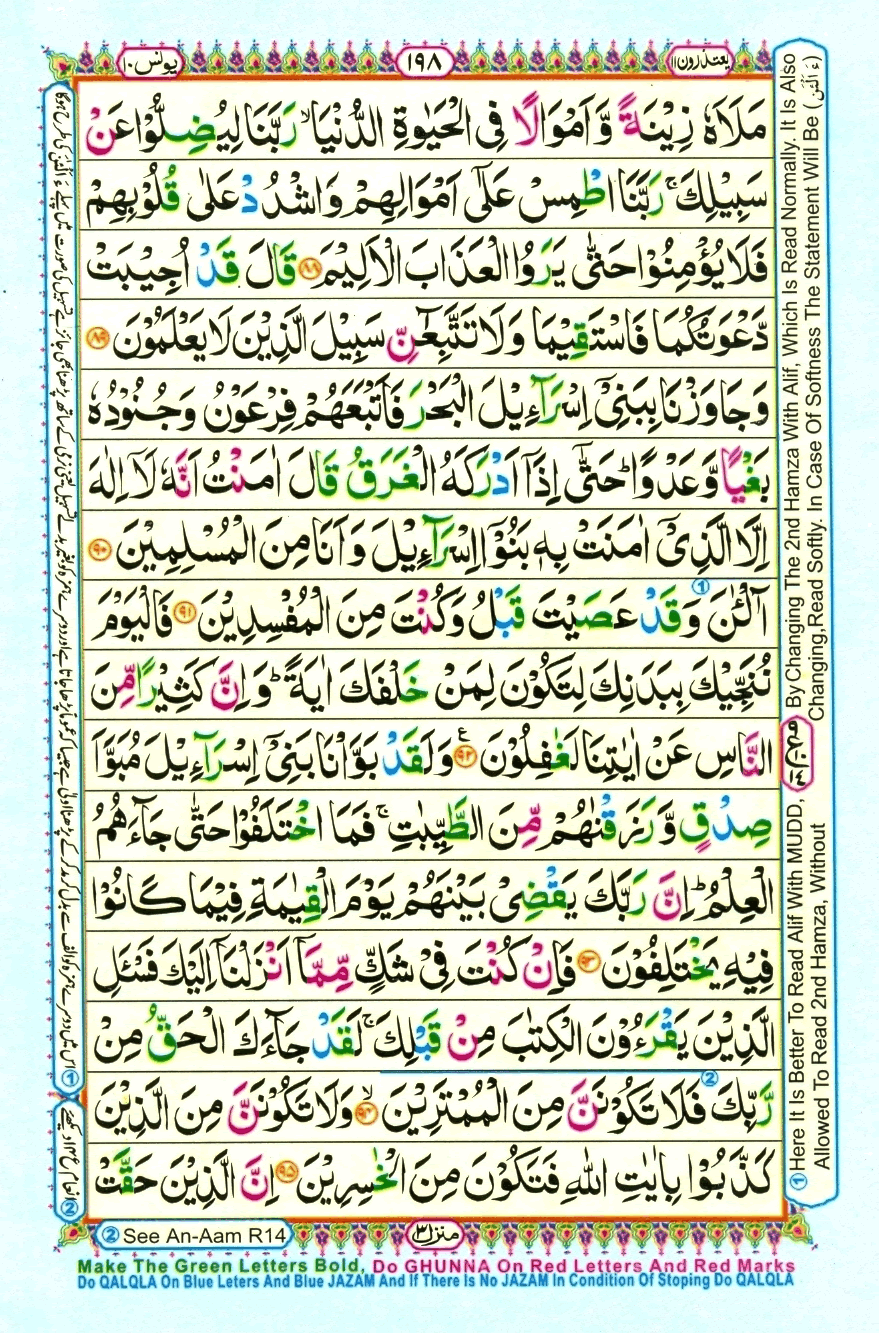 یعتذرون ۱۱
۱۹۸
یونس ۱۰
مَلَاَهٗ زِیْنَةً وَّاَمْوَالًا فِی الْحَیٰوةِ الدُّنْیَا ۙ رَبَّنَا لِیُضِلُّوْا عَنْ
سَبِیْلِكَ ۚ رَبَّنَا اطْمِسْ عَلٰۤی اَمْوَالِهِمْ وَاشْدُدْ عَلٰی قُلُوْبِهِمْ
فَلَا یُؤْمِنُوْا حَتّٰی یَرَوُا الْعَذَابَ الْاَلِیْمَ ۸۸ قَالَ قَدْ اُجِیْبَتْ
دَّعْوَتُكُمَا فَاسْتَقِیْمَا وَلَا تَتَّبِعٰٓنِّ سَبِیْلَ الَّذِیْنَ لَا یَعْلَمُوْنَ ۸۹
وَجَاوَزْنَا بِبَنِیْۤ اِسْرَآءِیْلَ الْبَحْرَ فَاَتْبَعَهُمْ فِرْعَوْنُ وَجُنُوْدُهٗ
بَغْیًا وَّعَدْوًا ؕ حَتّٰۤی اِذَاۤ اَدْرَكَهُ الْغَرَقُ قَالَ اٰمَنْتُ اَنَّهٗ لَاۤ اِلٰهَ
اِلَّا الَّذِیْۤ اٰمَنَتْ بِهٖ بَنُوْۤا اِسْرَآءِیْلَ وَاَنَا مِنَ الْمُسْلِمِیْنَ ۹۰
آٰلْـٰٔنَ وَقَدْ عَصَیْتَ قَبْلُ وَكُنْتَ مِنَ الْمُفْسِدِیْنَ ۹۱ فَالْیَوْمَ
نُنَجِّیْكَ بِبَدَنِكَ لِتَكُوْنَ لِمَنْ خَلْفَكَ اٰیَةً ؕ وَاِنَّ كَثِیْرًا مِّنَ
النَّاسِ عَنْ اٰیٰتِنَا لَغٰفِلُوْنَ ۹۲ ع وَلَقَدْ بَوَّاْنَا بَنِیْۤ اِسْرَآءِیْلَ مُبَوَّاَ
صِدْقٍ وَّرَزَقْنٰهُمْ مِّنَ الطَّیِّبٰتِ ۚ فَمَا اخْتَلَفُوْا حَتّٰی جَآءَهُمُ
الْعِلْمُ ؕ اِنَّ رَبَّكَ یَقْضِیْ بَیْنَهُمْ یَوْمَ الْقِیٰمَةِ فِیْمَا كَانُوْا
فِیْهِ یَخْتَلِفُوْنَ ۹۳ فَاِنْ كُنْتَ فِیْ شَكٍّ مِّمَّاۤ اَنْزَلْنَاۤ اِلَیْكَ فَسْـَٔلِ
الَّذِیْنَ یَقْرَءُوْنَ الْكِتٰبَ مِنْ قَبْلِكَ ۚ لَقَدْ جَآءَكَ الْحَقُّ مِنْ
رَّبِّكَ فَلَا تَكُوْنَنَّ مِنَ الْمُمْتَرِیْنَ ۹۴ ۙ وَلَا تَكُوْنَنَّ مِنَ الَّذِیْنَ
كَذَّبُوْا بِاٰیٰتِ اللّٰهِ فَتَكُوْنَ مِنَ الْخٰسِرِیْنَ ۹۵ اِنَّ الَّذِیْنَ حَقَّتْ
① Here It Is Better To Read Alif With MUDD, By Changing The 2nd Hamza With Alif, Which Is Read Normally. It Is Also
Allowed To Read 2nd Hamza, Without Changing, Read Softly. In Case Of Softness The Statement Will Be
② See An-Aam R14
منزل ۳
Make The Green Letters Bold, Do GHUNNA On Red Letters And Red Marks
Do QALQLA On Blue Leters And Blue JAZAM And If There Is No JAZAM In Condition Of Stoping Do QALQLA